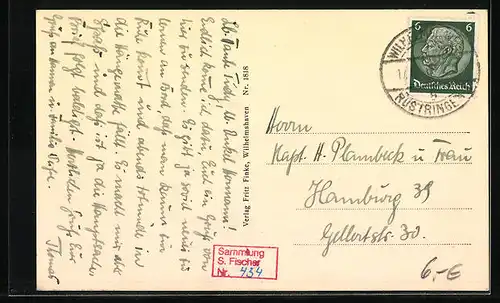 Lb. Tante Trudy u. Onkel Hermann!
Endlich komme ich dazu Euch ein Gruß von
hier zu senden. Es gibt ja soviel neues für
an Bord, daß man kaum zur
Ruhe kommt und abends todmüde in
die Hängematte fällt. Es macht mir aber
Spaß und das ist ja die Hauptsache
Brief folgt baldigst. Herzlichen Gruß Euer
Thomas
Gruß an
Verlag Fritz Finke, Wilhelmshaven Nr. 1818
6 6
Deutsches Reich
WILH
RÜSTRINGEN
Herrn
Kapt. H. Plambeck u Frau
Hamburg 39
Gellertstr. 30.
Sammlung
S. Fischer
Nr. 434
6,-€